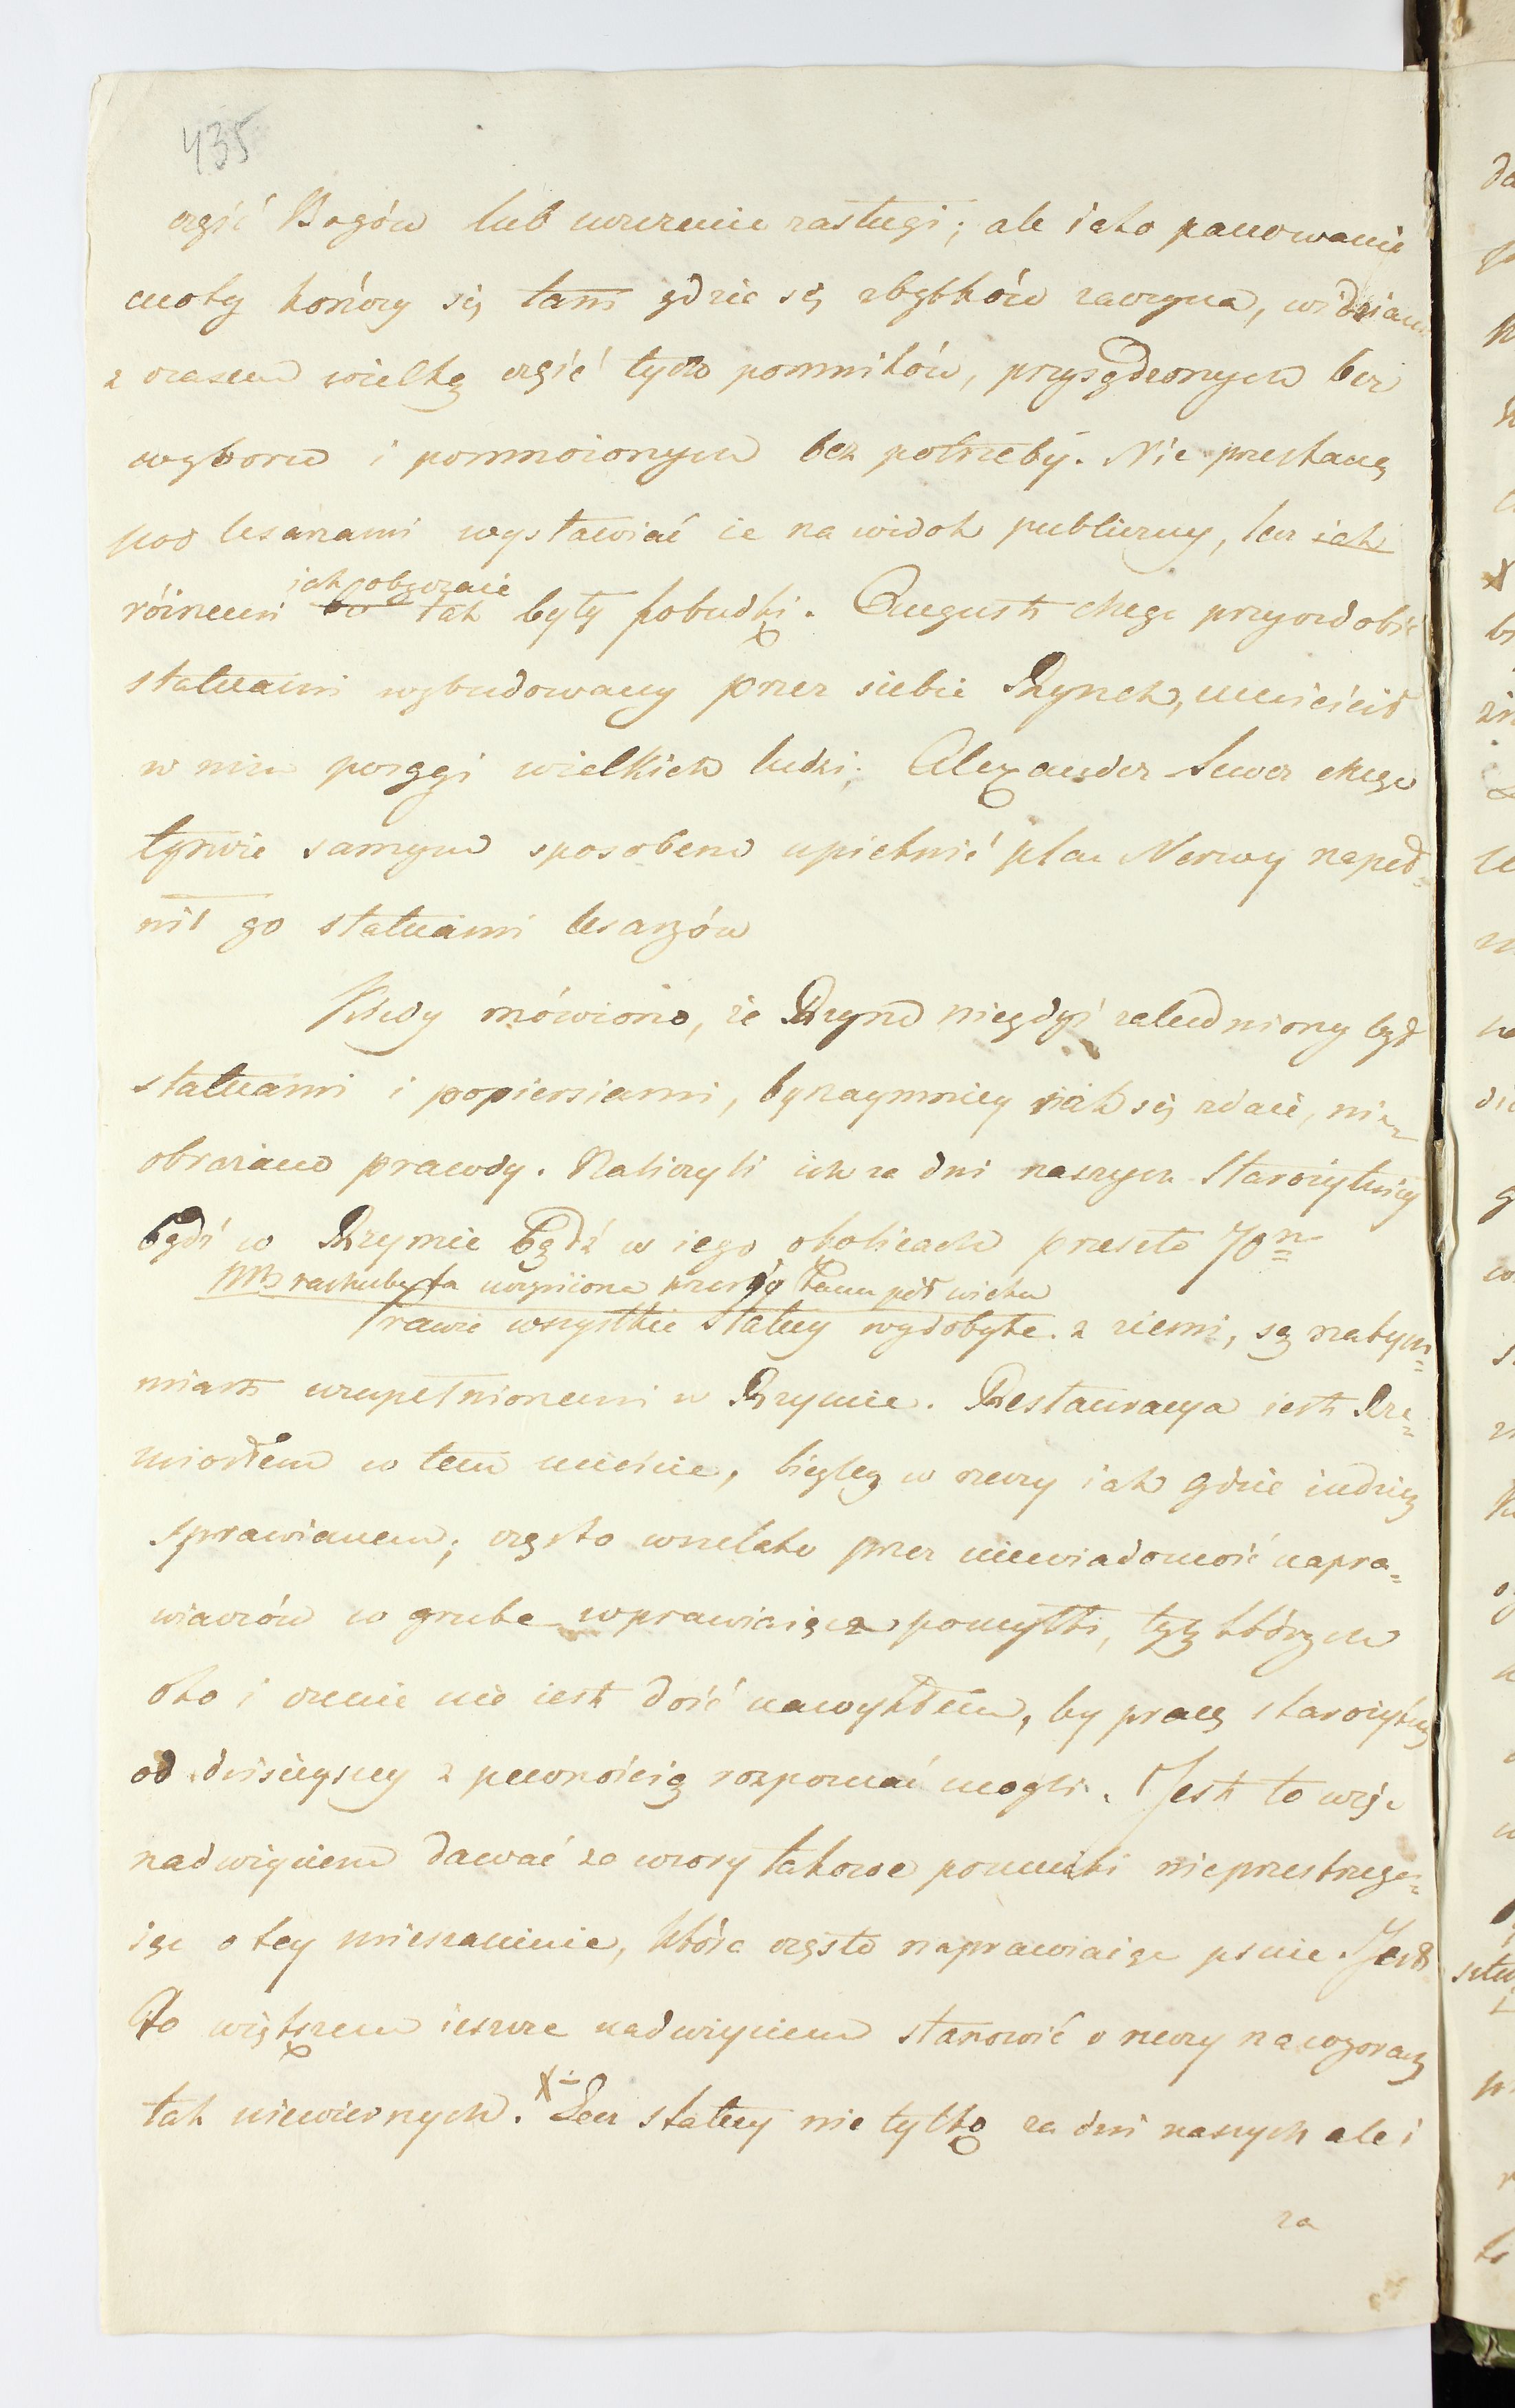 435
część Bogów lub uczczenie zasługi; ale iako panowanie
cnoty kończy się tam gdzie się zbytków zaczyna, widziano
z czasem wielką część tych pomników, przysądzonych bez
wyboru i pomnożonych bez potrzeby. Nie przestaną
pod Cesarzami wystawiać ie na widok publiczny, lecz iak
iak obyczaie
różnemi tak były pobudki. August chcąc przyozdobić
statuami wybudowany przez siebie Rynek, umieścił
w nim posągi wielkich ludzi; Alexander Sewer chcąc
tymże samym sposobem upięknić plac Nerwy napeł=
nił go statuami Cesarzów
Kiedy mówiono, że Rzym niegdyś zaludniony był
statuami i popiersiami, bynaymniey iak się zdaie, nie
obrażano prawdy. Naliczyli ich za dni naszych Starożytnicy
bądź w Rzymie bądź w iego okolicach przeszło 70 m
NB rachuba ta uczyniona przed tem pół wieku
Prawie wszystkie statuy wydobyte z ziemi, są natych=
miast uzupełnionemi w Rzymie. Restauracya iest Rze=
miosłem w tem mieście, biegley w rzeczy iak gdzie indziey
sprawianem; często wszelako przez niewiadomość napra=
wiaczów w grube wprawiaiące pomyłki, tych których
oko i czucie nie iest dość nawykłem, by pracę starożytną
od dzisieyszey z pewnością rozpoznać mogli. Jest to więc
nadużyciem dawać za wzory takowe pomniki nieprzestrzega=
iąc o tey mieszaninie, która często naprawiaiąc psuie. Jest
to większem ieszcze nadużyciem stanowić o rzeczy na wzorach
tak niewiernych. X Lecz statuy nie tylko za dni naszych ale i
za